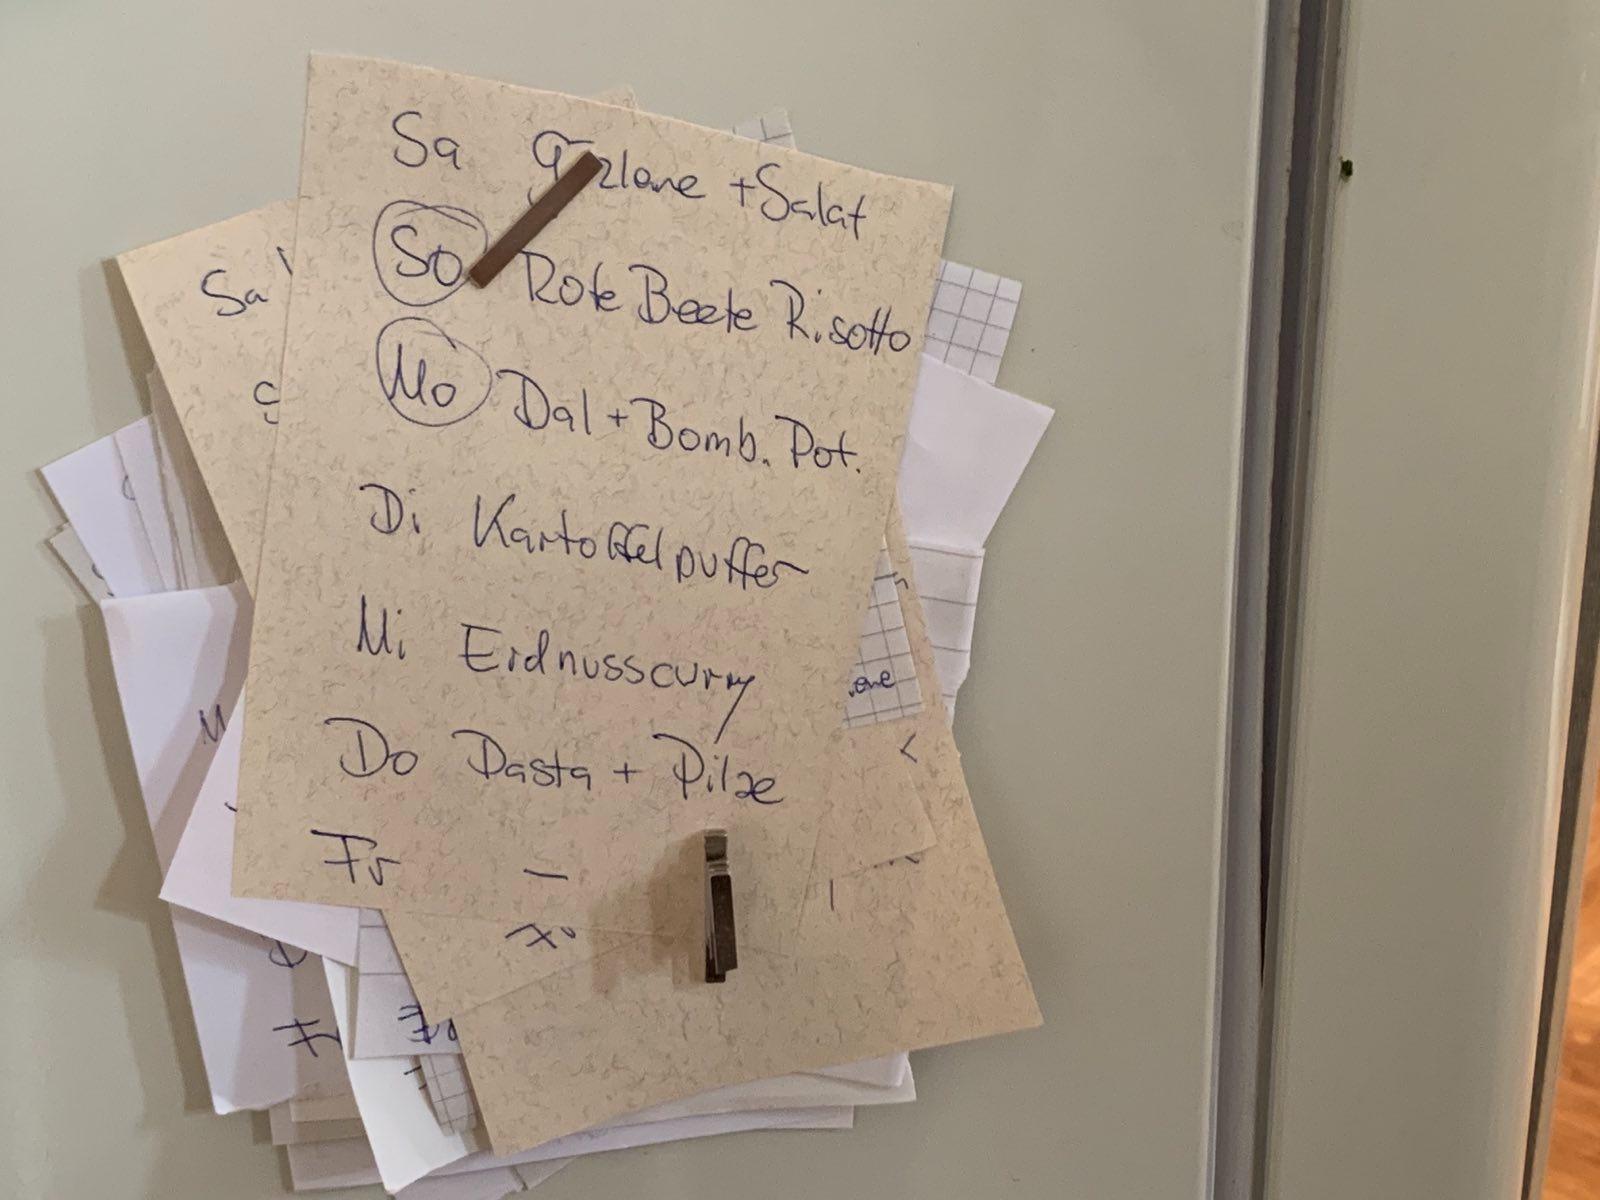 Sa + Salat
So Rote Beete Risotto
Mo Dal + Bomb. Pot.
Di Kartoffelpuffer
Mi Erdnusscurry
Do Pasta + Pilze
Fr -
Sa
Fr